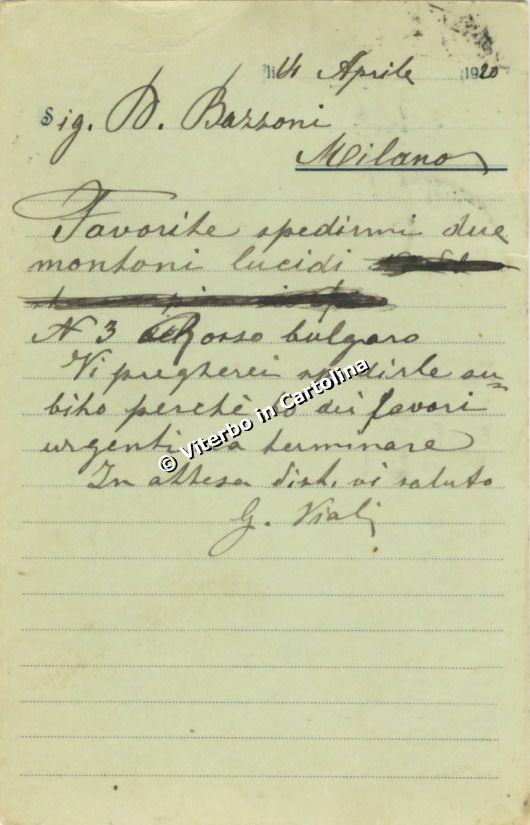 li 14 Aprile 1920
Sig. D. Bazzoni
Milano
Favorite spedirmi due
montoni lucidi
N 3 Rosso bulgaro
Vi pregherei spedirle su=
bito perchè ò dei favori
urgenti da terminare
In attesa dist. vi saluto
G. Viali
© Viterbo in Cartolina